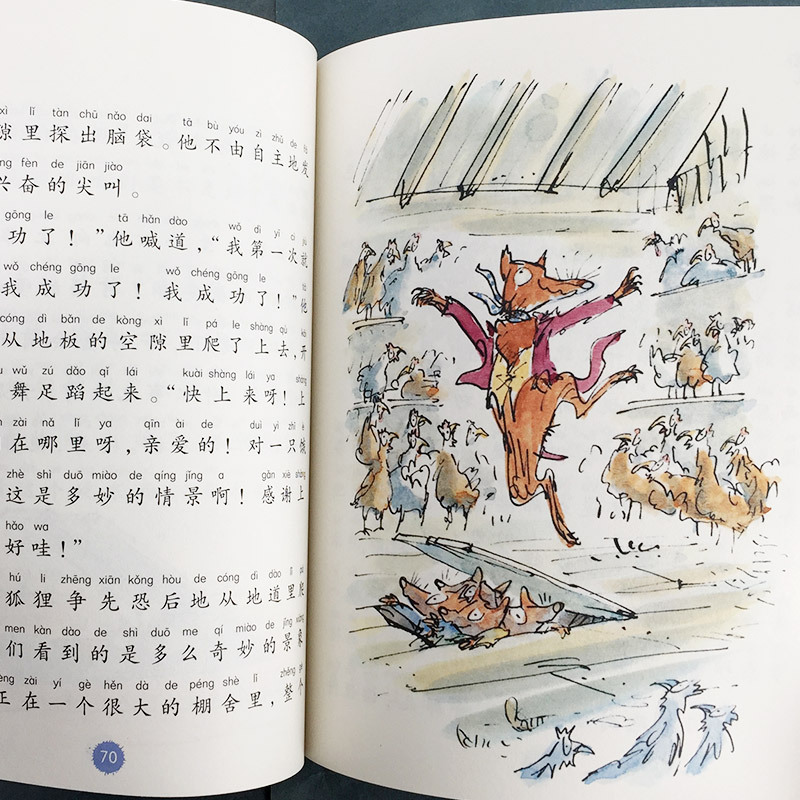 xì lǐ tàn chū nǎo dai tā bù yóu zì zhǔ de
隙里探出脑袋。他不由自主地发
fèn de jiān jiào
兴奋的尖叫。
gōng le tā hǎn dào wǒ dì yī cì jiù
功了！”他喊道，“我第一次就
wǒ chéng gōng le wǒ chéng gōng le
我成功了！我成功了！”他
cóng dì bǎn de kòng xì lǐ pá le shàng qù kāi
从地板的空隙里爬了上去，开
wǔ zú dǎo qǐ lái kuài shàng lái ya shàng
舞足蹈起来。“快上来呀！上
zài nǎ lǐ ya qīn ài de duì yì zhī
在哪里呀，亲爱的！对一只饿
zhè shì duō miào de qíng jǐng a gǎn xiè shàng
这是多妙的情景啊！感谢上
hǎo wa
好哇！”
hú li zhēng xiān kǒng hòu de cóng dì dào lǐ pá
狐狸争先恐后地从地道里爬
men kàn dào de shì duō me qí miào de jǐng xiàng
们看到的是多么奇妙的景象
zài yí gè hěn dà de péng shè lǐ zhěng gè
正在一个很大的棚舍里，整个
70